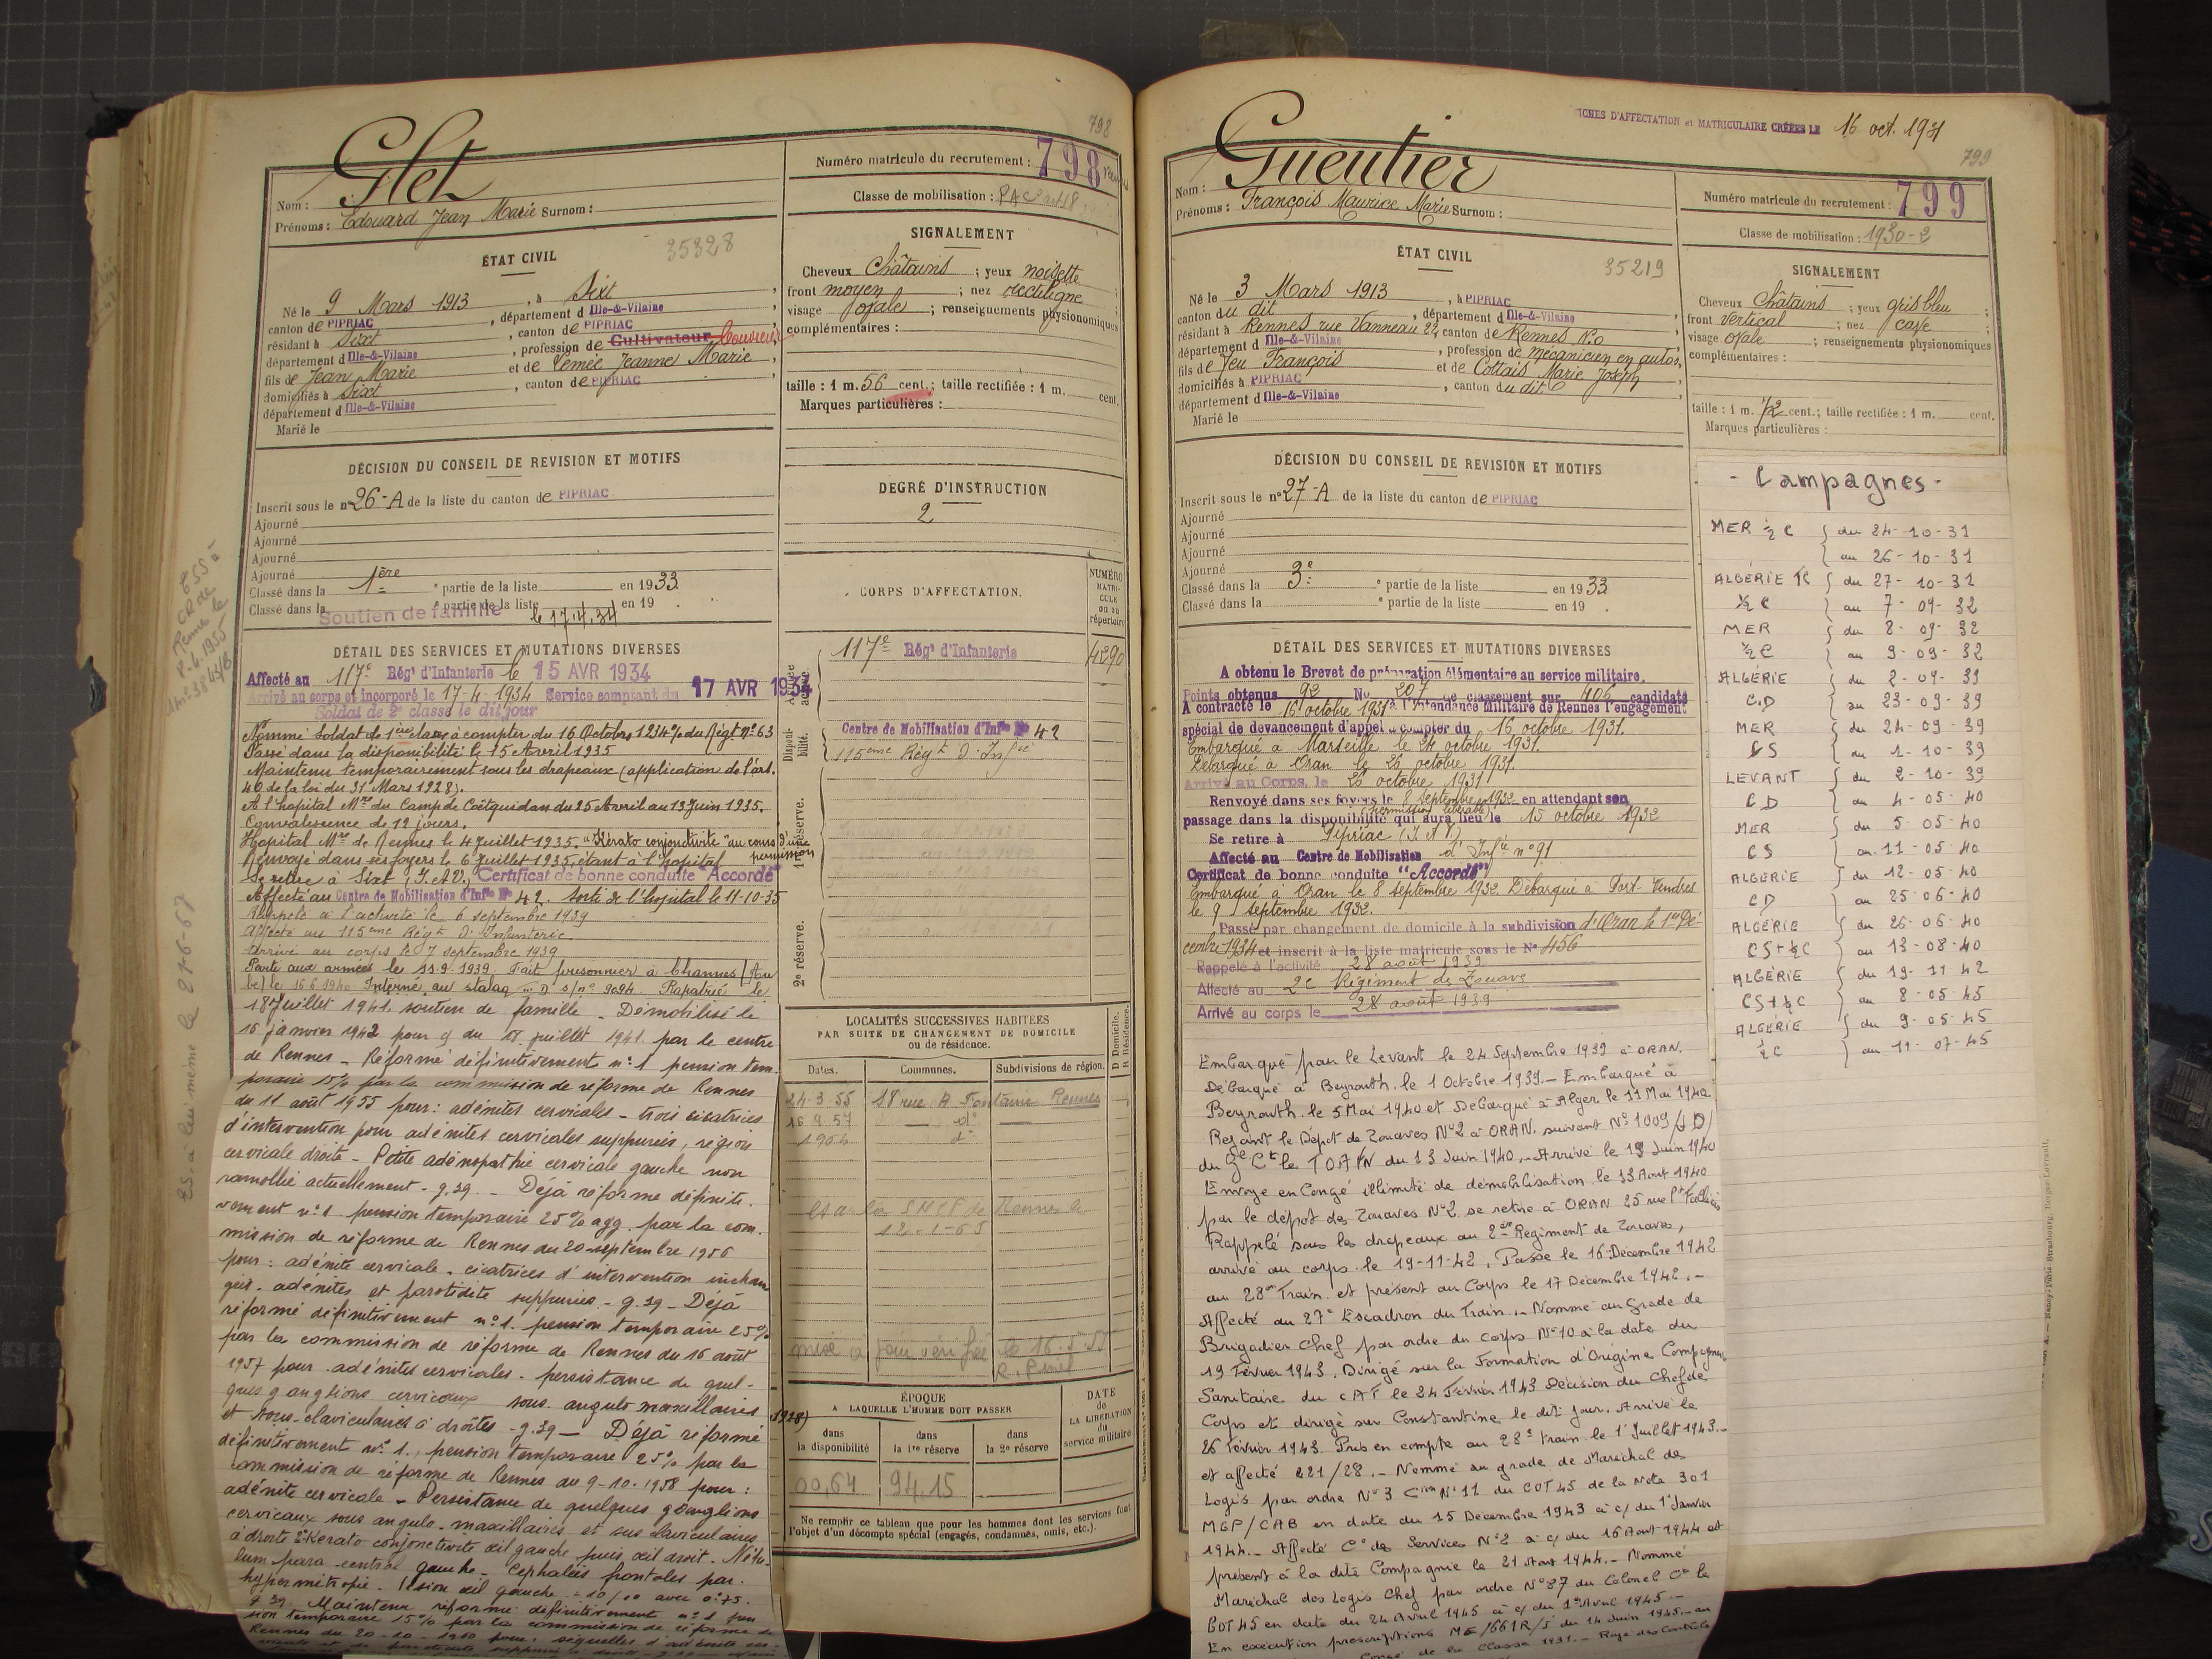 798
Glet
Nom :
Prénoms : Edouard Jean Marie Surnom :
Numéro matricule du recrutement : 798
Classe de mobilisation :
ÉTAT CIVIL
35328
Né le 9 Mars 1913, à Sixt,
canton de PIPRIAC, département d Ille-&-Vilaine
résidant à Sixt, canton de PIPRIAC
département d Ille-&-Vilaine, profession de Cultivateur Couvreur
fils de Jean Marie et de Lemée Jeanne Marie,
domiciliés à Sixt, canton de PIPRIAC,
département d Ille-&-Vilaine
Marié le
SIGNALEMENT
Cheveux Châtains ; yeux noisette
front moyen ; nez rectiligne ;
visage ovale ; renseignements physionomiques
complémentaires :
taille : 1 m. 56 cent.; taille rectifiée : 1 m. cent.
Marques particulières :
DÉCISION DU CONSEIL DE REVISION ET MOTIFS
Inscrit sous le n° 26-A de la liste du canton de PIPRIAC
Ajourné
Ajourné
Ajourné
Ajourné
Classé dans la 1ère partie de la liste en 1933
Classé dans la ° partie de la liste en 19 .
Soutien de famille le 17.4.34
DEGRÉ D'INSTRUCTION
2
DÉTAIL DES SERVICES ET MUTATIONS DIVERSES
Affecté au 117e Régt d'Infanterie le 15 AVR 1934
Arrivé au corps et incorporé le 17-4-1934 Service comptant du 17 AVR 1934
Soldat de 2e classe le dit jour
Nommé soldat de 1ère classe à compter du 16 Octobre 1934 % du Régt N° 63
Passé dans la disponibilité le 15 Avril 1935
Maintenu temporairement sous les drapeaux (application de l'art.
40 de la loi du 31 Mars 1928).
A l'hôpital Mre du Camp de Coëtquidan du 25 Avril au 13 Juin 1935.
Convalescence de 12 jours.
Hôpital Mre de Rennes le 4 Juillet 1935. "Kérato conjonctivite" au cours d'une
permission
Renvoyé dans ses foyers le 6 Juillet 1935, étant à l'hôpital
Se retire à Sixt (I. et V.) Certificat de bonne conduite "Accordé"
Affecté au Centre de Mobilisation d'Infie N° 42. Sorti de l'hôpital le 11-10-35
Rappelé à l'activité le 6 septembre 1939
Affecté au 115eme Régt d'Infanterie
Arrivé au corps le 7 septembre 1939
Parti aux armées le 11.9.1939. Fait prisonnier à Channes (Au
be) le 16.6.1940 Interné au stalag III D s/n° 9094 Rapatrié le
18 Juillet 1941, soutien de famille. Démobilisé le
16 janvier 1942 pour c/ du 18 juillet 1941 par le centre
de Rennes - Réformé définitivement n° 1 pension tem-
poraire 15% par la commission de réforme de Rennes
du 11 août 1955 pour : adénites cervicales - trois cicatrices
d'intervention pour adénites cervicales suppurées, région
cervicale droite - Petite adénopathie cervicale gauche non
ramollie actuellement - g.39. - Déjà réformé définiti-
vement n° 1 pension temporaire 25% agg. par la com-
mission de réforme de Rennes du 20 septembre 1956
pour : adénite cervicale. cicatrices d'intervention inchan
gées. adénites et parotidite suppurées - g.39 - Déjà
réformé définitivement n° 1. pension temporaire 25%
par la commission de réforme de Rennes du 16 août
1957 pour adénites cervicales. persistance de quel-
ques ganglions cervicaux sous angulo maxillaires
et sous-claviculaires à droites - g.39 - Déjà réformé
définitivement n° 1., pension temporaire 25% par la
commission de réforme de Rennes du 9-10-1958 pour :
adénite cervicale - Persistance de quelques ganglions
cervicaux sous angulo-maxillaires et sus claviculaires
à droite 2° Kérato conjonctivite œil gauche puis œil droit.
para-central gauche. Céphalées frontales par
hypermétropie. Vision œil gauche = 10/10 avec
g.39. Maintenu réformé définitivement n° 1 pen
sion temporaire 15% par la commission de réforme de
Rennes du 20-10-1960 pour, séquelles d'adénite cer-
CORPS D'AFFECTATION.
NUMÉRO MATRI-CULE ou au répertoire
117e Régt d'Infanterie 4290
Disponi-bilité.
Centre de Mobilisation d'Infie N° 42
115eme Régt d'Infie
1re réserve.
2e réserve.
LOCALITÉS SUCCESSIVES HABITÉES
PAR SUITE DE CHANGEMENT DE DOMICILE
ou de résidence.
D Domicile. R Résidence.
Dates. Communes. Subdivisions de région.
24-3-55 18 rue A Fontaine Rennes
16.8.57 — d°
d°
la SNCF de Rennes le
12-1-65
mise à jour
ÉPOQUE
A LAQUELLE L'HOMME DOIT PASSER
dans la disponibilité
dans la 1re réserve
dans la 2e réserve
DATE de LA LIBÉRATION du service militaire
00,64 94.15
Ne remplir ce tableau que pour les hommes dont les services font
l'objet d'un décompte spécial (engagés, condamnés, omis, etc.).
FICHES D'AFFECTATION et MATRICULAIRE CRÉÉES LE 16 oct. 1931
799
Gueutier
Nom :
Prénoms : François Maurice Marie Surnom :
Numéro matricule du recrutement : 799
Classe de mobilisation : 1930-2
ÉTAT CIVIL
35219
Né le 3 Mars 1913, à PIPRIAC
canton du dit, département d Ille-&-Vilaine
résidant à Rennes rue Vanneau 22, canton de Rennes N.O
département d Ille-&-Vilaine, profession de mécanicien en autos,
fils de feu François et de Collais Marie Joseph,
domiciliés à PIPRIAC, canton du dit
département d Ille-&-Vilaine
Marié le
SIGNALEMENT
Cheveux Châtains ; yeux gris bleu ;
front vertical ; nez cave ;
visage ovale ; renseignements physionomiques
complémentaires :
taille : 1 m. 72 cent.; taille rectifiée : 1 m. cent.
Marques particulières :
DÉCISION DU CONSEIL DE REVISION ET MOTIFS
Inscrit sous le n° 27-A de la liste du canton de PIPRIAC
Ajourné
Ajourné
Ajourné
Ajourné
Classé dans la 3e partie de la liste en 1933
Classé dans la ° partie de la liste en 19 .
DÉTAIL DES SERVICES ET MUTATIONS DIVERSES
A obtenu le Brevet de préparation élémentaire au service militaire.
Points obtenus 92 No 207 de classement sur 406 candidats
A contracté le 16 octobre 1931 à l'Intendance Militaire de Rennes l'engagement
spécial de devancement d'appel à compter du 16 octobre 1931.
Embarqué à Marseille le 24 octobre 1931.
Débarqué à Oran le 26 octobre 1931.
Arrivé au Corps, le 26 octobre 1931
Renvoyé dans ses foyers le 8 septembre 1932 en attendant son
(permission libérable)
passage dans la disponibilité qui aura lieu le 15 octobre 1932
Se retire à Pipriac (I. et V.)
Affecté au Centre de Mobilisation d'Infie n° 91
Certificat de bonne conduite "Accordé"
Embarqué à Oran le 8 septembre 1932 Débarqué à Port-Vendres
le 9 septembre 1932.
Passé par changement de domicile à la subdivision d'Oran le 1er Dé-
cembre 1934 et inscrit à la liste matricule sous le No 456
Rappelé à l'activité 28 août 1939
Affecté au 2e Régiment de Zouaves
Arrivé au corps le 28 août 1939
Embarqué pour le Levant le 24 Septembre 1939 à ORAN.
Débarqué à Beyrouth le 1 Octobre 1939. - Embarqué à
Beyrouth le 5 Mai 1940 et Débarqué à Alger le 11 Mai 1940
Rejoint le Dépôt de Zouaves N° 2 à ORAN. suivant N° 1009
du Gal Ct le TOAFN du 13 Juin 1940. - Arrivé le 19 Juin 1940
Envoyé en Congé illimité de démobilisation le 13 Aout 1940
par le dépot des Zouaves N° 2 se retire à ORAN 25 rue
Rappelé sous les drapeaux au 2ème Régiment de Zouaves,
arrivé au corps le 19-11-42. Passe le 16 Décembre 1942
au 28em Train et présent au Corps le 17 Décembre 1942. -
Affecté au 27e Escadron du Train. - Nommé au Grade de
Brigadier Chef par ordre du corps N° 10 à la date du
19 Février 1943. Dirigé sur la Formation d'Origine Compagnie
Sanitaire du CAF le 24 Février 1943 Décision du Chef de
Corps et dirigé sur Constantine le dit jour. Arrivé le
26 Février 1943. Pris en compte au 28e train le 1er Juillet 1943. -
et affecté 221/28. - Nommé au grade de Maréchal des
Logis par ordre N° 3 N° 11 du COT 45 de la Note 301
MGP/CAB en date du 15 Décembre 1943 à c/ du 1er Janvier
1944. - Affecté Cie des Services N° 2 à c/ du 16 Aout 1944 et
présent à la dite Compagnie le 21 Aout 1944. - Nommé
Maréchal des Logis Chef par ordre N° 87 du Colonel Ct le
COT 45 en date du 24 Avril 1945 à c/ du 1er Avril 1945. -
En exécution prescriptions ME/661R/S du 14 Juin 1945. - au
- Campagnes -
MER ½ C { du 24-10-31
au 26-10-31
ALGÉRIE { du 27-10-31
½ C au 7-09-32
MER { du 8-09-32
½ C au 9-09-32
ALGÉRIE { du 2-09-39
C.D au 23-09-39
MER { du 24-09-39
CS au 1-10-39
LEVANT { du 2-10-39
CD au 4-05-40
MER { du 5-05-40
CS au 11-05-40
ALGERIE { du 12-05-40
CD au 25-06-40
ALGÉRIE { du 26-06-40
CS+½C au 13-08-40
ALGÉRIE { du 19-11-42
CS+½C au 8-05-45
ALGÉRIE { du 9-05-45
½ C au 11-07-45